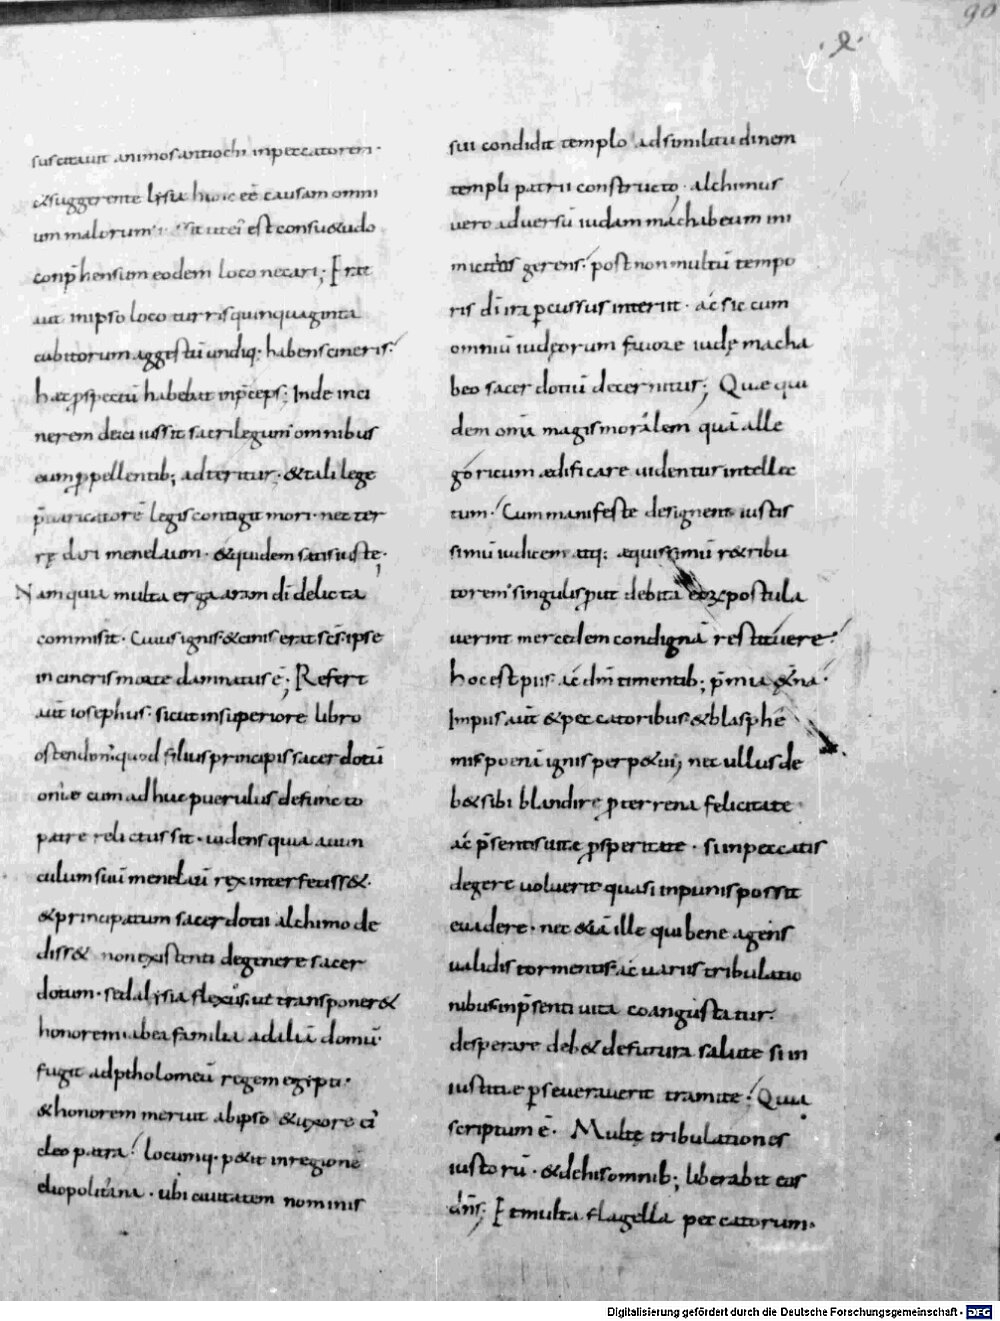 90
suscitauit animos antiochi inpeccatorem·
&suggerente lysia hunc eē causam omni
um malorum· iussit utei est consu&udo
conp̄hensum eodem loco necari; Erat
aut inipso loco turris quinquaginta
cubitorum aggestū undiq; habens cineris:
hæc ꝓspectū habebat inp̄ceps; Inde inci
nerem deici iussit sacrilegum omnibus
eum ꝓpellentib; adteritur· &tali lege
p̄uaricatorē legis contigit mori· nec ter
rę dari menelaum· &quidem satis iuste;
Nam quia multa erga aram dī delicta
commisit· Cuius ignis &cinis erat scs̄· ipse
in cineris morte damnatus ē; Refert
aūt iosephus· sicut insuperiore libro
ostendim; quod filius principis sacerdotū
oniæ cum adhuc puerulus defuncto
patre relictus sit· uidens quia auun
culum suū menelaū rex interfecess&·
&principatum sacerdotii alchimo de
diss& non existenti degenere sacer
dotum· sed alysia flexus· ut transponer&
honorem ab ea familia ad aliā domū·
fugit adptholomeū regem egipti·
&honorem meruit abipso &uxore ei
cleopatra: locumq· p&iit inregione
eliopolitana· ubi ciuitatem nominis
sui condidit templo adsimilitudinem
templi patrii constructo· alchimus
uero aduersū iudam machabeum ini
micitias gerens: post non multū tempo
ris dī ira ꝑcussus interiit· ac sic cum
omniū iudęorum fauore iudę macha
beo sacerdotiū decernitur; Quæ qui
dem omā magis moralem quā alle
goricum ædificare uidentur intellec
tum: Cum manifeste designent iustis
simū iudicem atq; æquissimū r&ribu
torem singulis ꝓut debita eorum postula
uerint mercedem condignā restituere:
hoc est piis ac dm̄ timentib; p̄mia &ērna:
Impiis aūt &peccatoribus &blasphē
mis poenā ignis perp&ui; nec ullus de
b& sibi blandire ꝓ terrena felicitate
ac p̄sentis uitæ ꝓsperitate· si inpeccatis
degere uoluerit quasi inpunis possit
euadere· nec &iā ille qui bene agens
ualidis tormentis ac uariis tribulatio
nibus inp̄senti uita coangustatur:
desperare deb& defutura salute si in
iustitiæ ꝑseuerauerit tramite: Quia
scriptum ē· Multę tribulationes
iustorū· &dehis omnib; liberabit eos
dn̄s; Et multa flagella peccatorum·
Digitalisierung gefördert durch die Deutsche Forschungsgemeinschaft - DFG